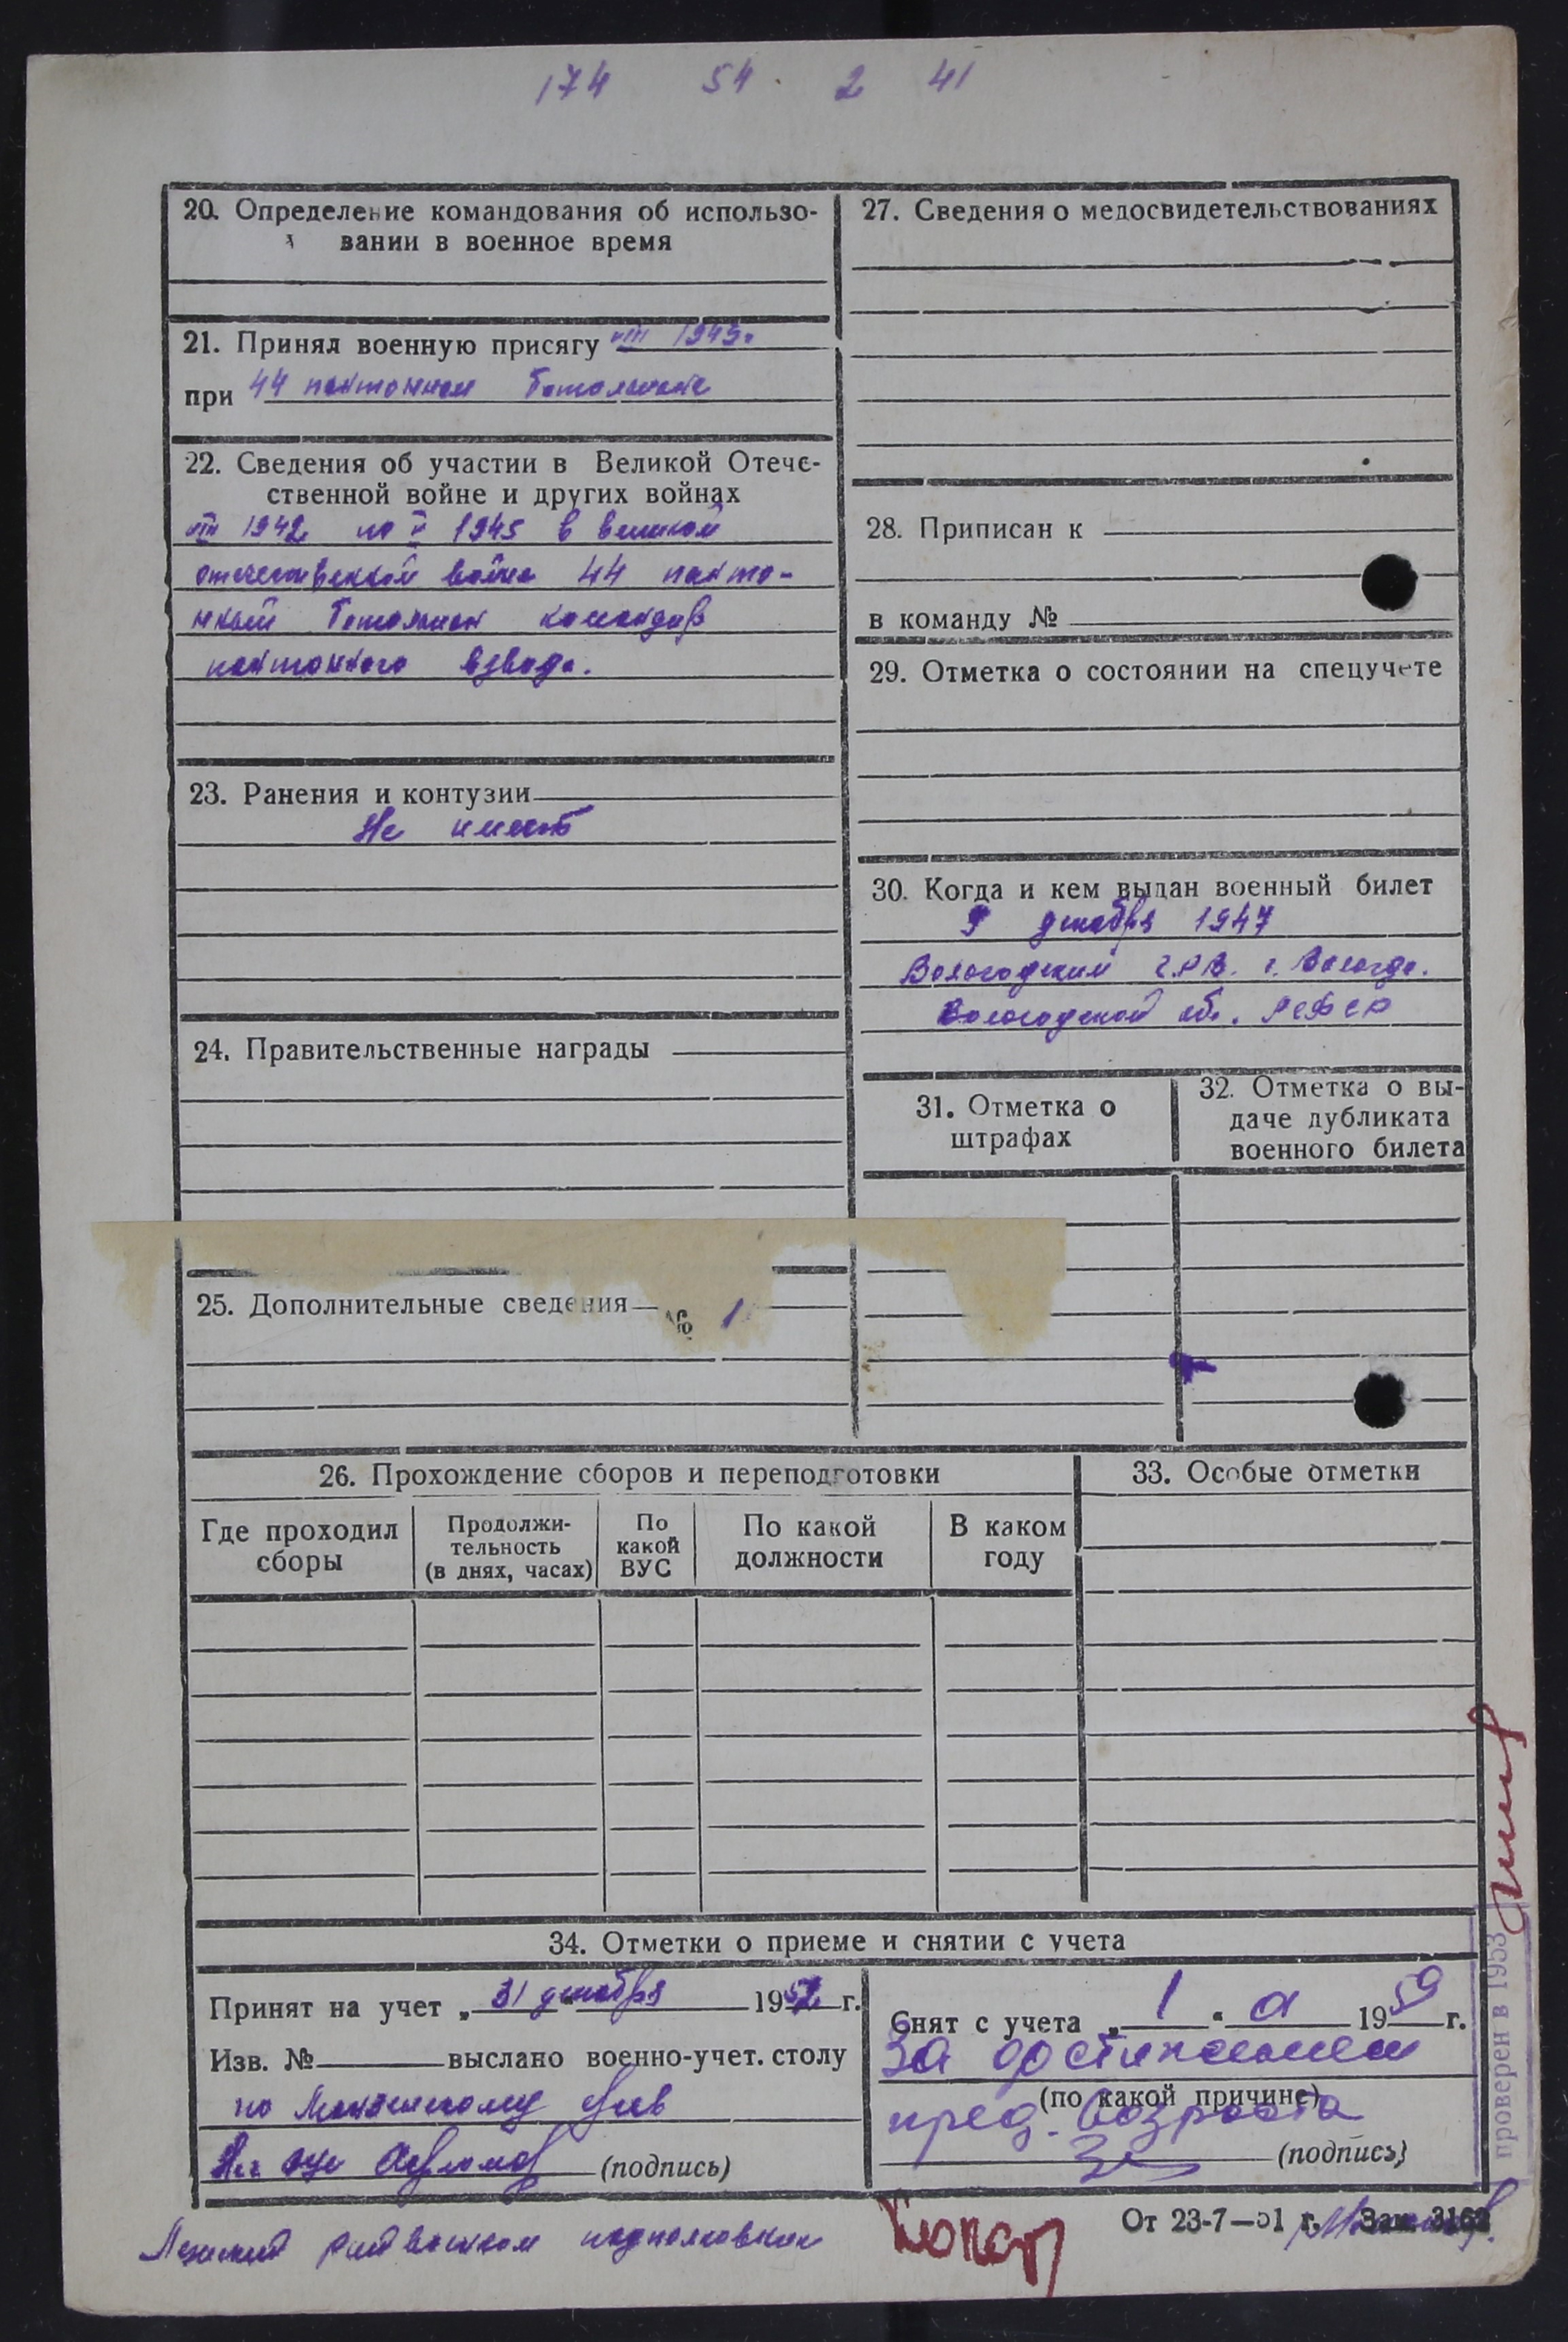 174 54. 2 41
20. Определение командования об использо-
вании в военное время
21. Принял военную присягу VIII 1943г
при 44 понтонном Батальоне
22. Сведения об участии в Великой Отече-
ственной войне и других войнах
VIII 1942 по V 1945 в великой
отечественной войне 44 понто-
нный Батальон командир
понтонного взвода.
23. Ранения и контузии
Не имеет
24. Правительственные награды
25. Дополнительные сведения
№ 1
26. Прохождение сборов и переподготовки
Где проходил
сборы
Продолжи-
тельность
(в днях, часах)
По
какой
ВУС
По какой
должности
В каком
году
27. Сведения о медосвидетельствованиях
28. Приписан к
в команду №
29. Отметка о состоянии на спецучете
30. Когда и кем выдан военный билет
9 декабря 1947
Вологодским г.Р.В. г. Вологда.
Вологодской об. РСФСР
31. Отметка о
штрафах
32. Отметка о вы-
даче дубликата
военного билета
33. Особые отметки
34. Отметки о приеме и снятии с учета
Принят на учет „ 31 декабря 1952 г.
Изв. № выслано военно-учет. столу
по
(подпись)
Снят с учета „ 1 “ 1959 г.
За достижением
(по какой причине)
пред. возраста
(подпись)
райвоенком подполковник
От 23-7—51 г. Зак. 3162
проверен в 1953